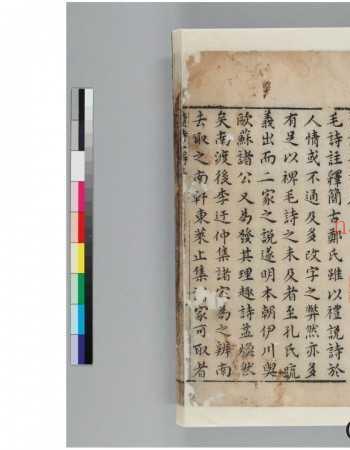 毛詩註釋簡古鄭氏雖以禮説詩於
人情或不通及多改字之弊然亦多
有足以裨毛詩之未及者至孔氏疏
義出而二家之説遂明本朝伊川與
歐蘇諸公又為發其理趣詩益煥然
矣南渡後李迂仲集諸家為之辨而
去取之南軒東萊止集諸家可取者